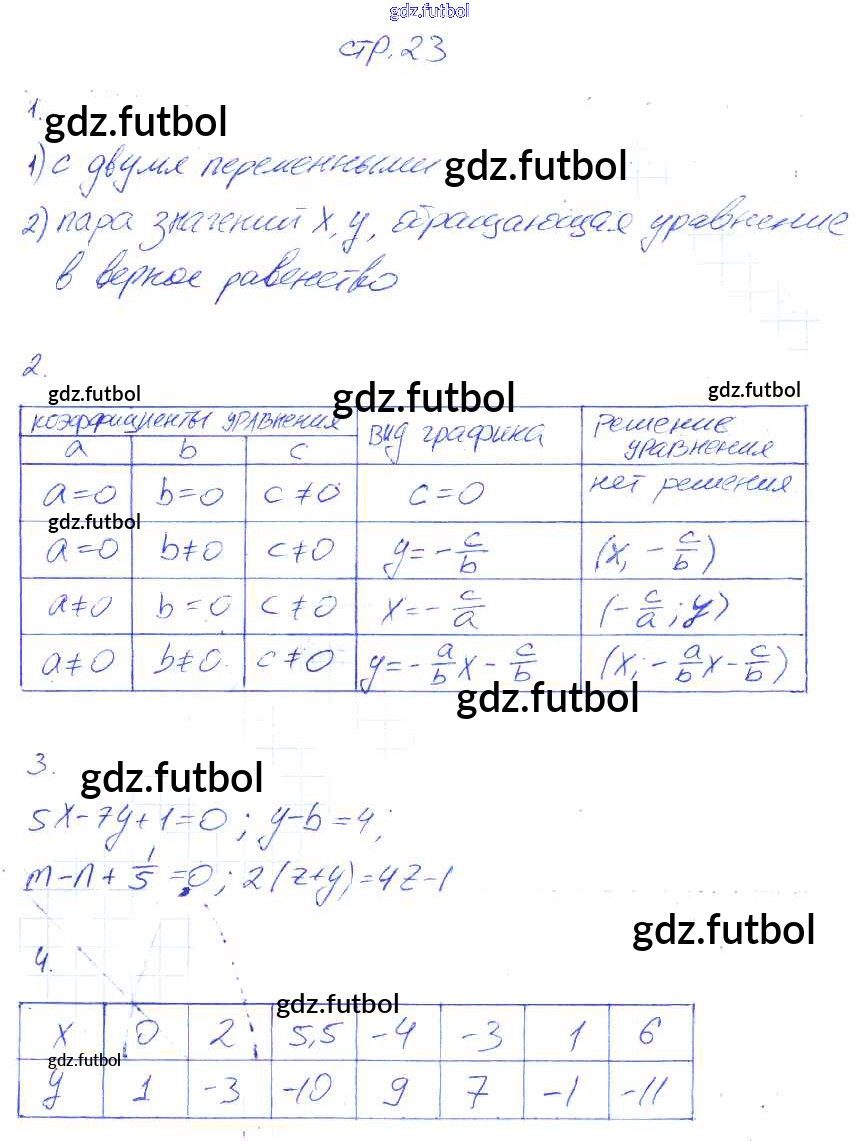 gdz.futbol
стр. 23
1.
gdz.futbol
1) с двумя переменными gdz.futbol
2) пара значений x, y, обращающая уравнение
в верное равенство
2.
gdz.futbol gdz.futbol gdz.futbol
коэффициенты уравнения вид графика Решение уравнения
a b c
a=0 b=0 c≠0 c=0 нет решения
gdz.futbol
a=0 b≠0 c≠0 y=-c/b (x, -c/b)
a≠0 b=0 c≠0 x=-c/a (-c/a; y)
a≠0 b≠0. c≠0 y=-a/b x - c/b (x; -a/b x - c/b)
gdz.futbol
3. gdz.futbol
5x-7y+1=0; y-b=4;
m-n+1/5=0; 2(z+y)=4z-1
gdz.futbol
4.
gdz.futbol
x 0 2 5,5 -4 -3 1 6
gdz.futbol
y 1 -3 -10 9 7 -1 -11